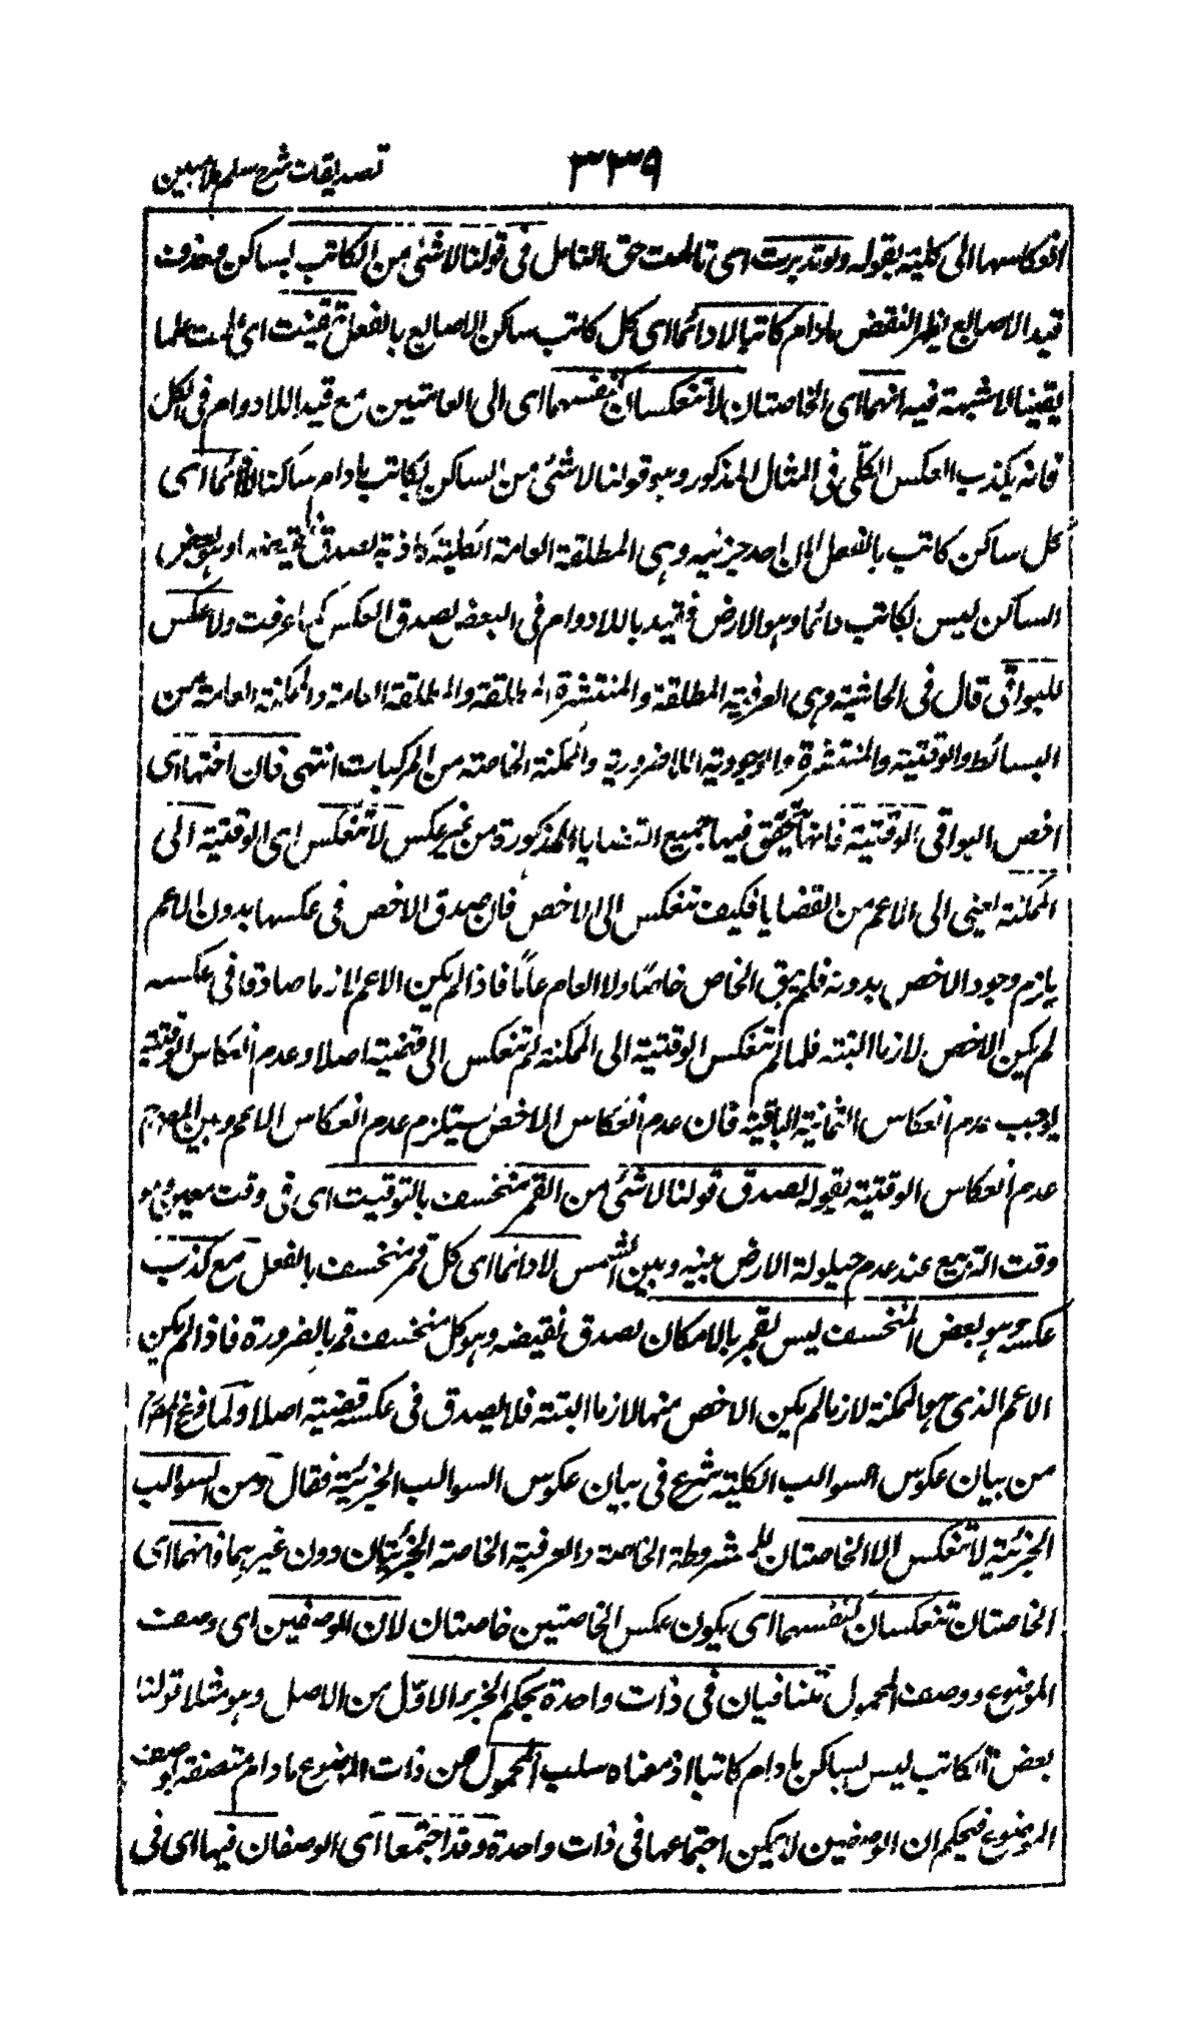 تصديقات شرح سلم ملا مبين
٣٣٩
انعكاسهما الى كلية بقوله ولو تدبرت اى تاملت حق التامل فى قولنا لا شئى من الكاتب بساكن محذوف
قيد الاصابع ليظهر النقض مادام كاتبا لا دائما اى كل كاتب ساكن الاصابع بالفعل تيقنت اى علمت علما
يقينا لا شبهة فيه انهما اى الخاصتان لا تنعكسان كنفسهما اى الى العامتين مع قيد اللادوام فى الكل
فانه يكذب العكس الكلى فى المثال المذكور وهو قولنا لا شئى من الساكن بكاتب مادام ساكنا لا دائما اى
كل ساكن كاتب بالفعل لان احد جزئيه وهى المطلقة العامة الكلية كاذبة لصدق نقيضه وهو بعض
الساكن ليس بكاتب دائما وهو الارض فقيد باللادوام فى البعض لصدق العكس كما عرفت ولا عكس
للبواقى قال فى الحاشية وهى العرفية المطلقة والمنتشرة المطلقة والمطلقة العامة والممكنة العامة من
البسائط والوقتية والمنتشرة والوجودية اللاضرورية والممكنة الخاصة من المركبات انتهى فان اخصها اى
اخص البواقى الوقتية فانها تحقق فيها جميع القضايا المذكورة من غير عكس لا تنعكس اى الوقتية الى
الممكنة يعنى الى الاعم من القضايا فكيف تنعكس الى الاخص فان صدق الاخص فى عكسها بدون الاعم
يلزم وجود الاخص بدونه فلم يبق الخاص خاصا ولا العام عاما فاذا لم يكن الاعم لازما صادقا فى عكسه
لم يكن الاخص لازما البتة فلما لم تنعكس الوقتية الى الممكنة لم تنعكس الى قضية اصلا وعدم انعكاس الوقتية
يوجب عدم انعكاس الثمانية الباقية فان عدم انعكاس الاخص يستلزم عدم انعكاس الاعم وبين المص
عدم انعكاس الوقتية بقوله لصدق قولنا لا شئى من القمر منخسف بالتوقيت اى فى وقت معين وهو
وقت التربيع عند عدم حيلولة الارض بينه وبين الشمس لا دائما اى كل قمر منخسف بالفعل مع كذب
عكسه وهو بعض المنخسف ليس بقمر بالامكان لصدق نقيضه وهو كل منخسف قمر بالضرورة فاذا لم يكن
الاعم الذى هو الممكنة لازما لم يكن الاخص منها لازما البتة فلا يصدق فى عكسه قضية اصلا ولما فرغ المص
من بيان عكوس السوالب الكلية شرع فى بيان عكوس السوالب الجزئية فقال ومن السوالب
الجزئية لا تنعكس الا الخاصتان المشروطة الخاصة والعرفية الخاصة الجزئيتان دون غيرهما فانهما اى
الخاصتان تنعكسان كنفسهما اى يكون عكس الخاصتين خاصتان لان الوصفين اى وصف
الموضوع ووصف المحمول تتنافيان فى ذات واحدة بحكم الجزء الاول من الاصل وهو مثلا قولنا
بعض الكاتب ليس بساكن مادام كاتبا اذ معناه سلب المحمول عن ذات الموضوع مادام متصفة بوصف
الموضوع فيحكم ان الوصفين لا يمكن اجتماعهما فى ذات واحدة وقد اجتمعا اى الوصفان فيها اى فى